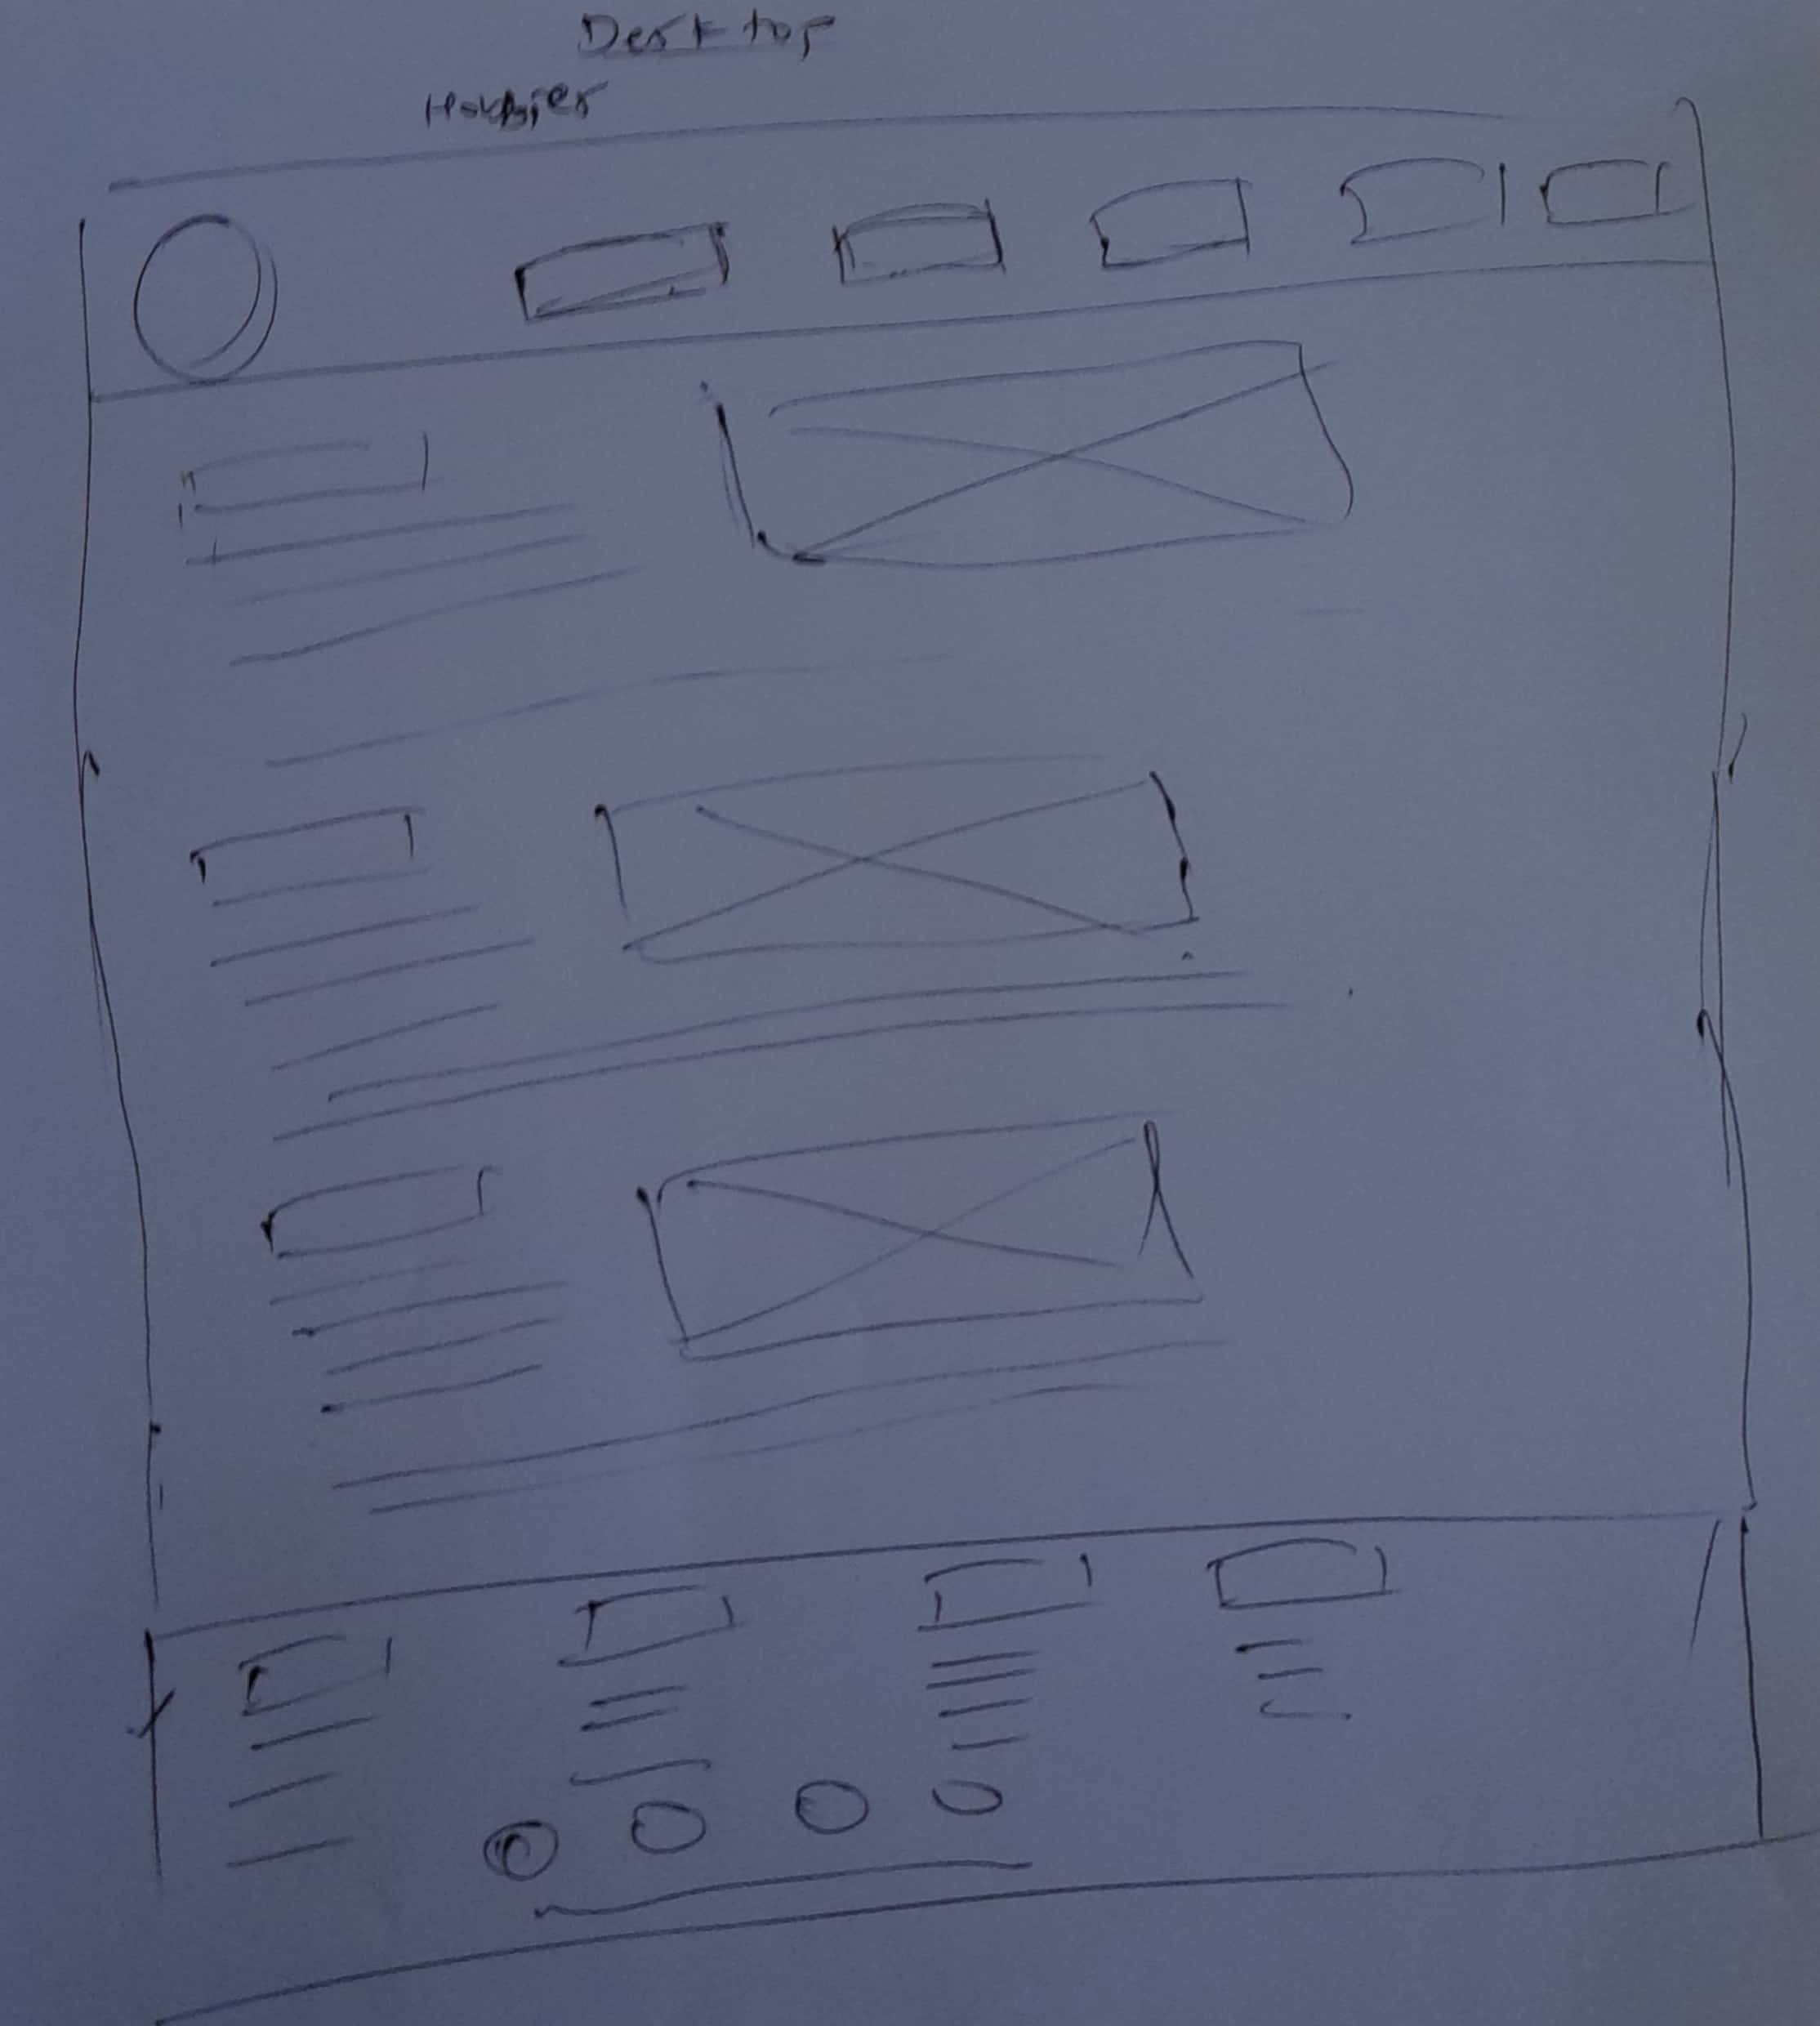 Desktop
Hobbies